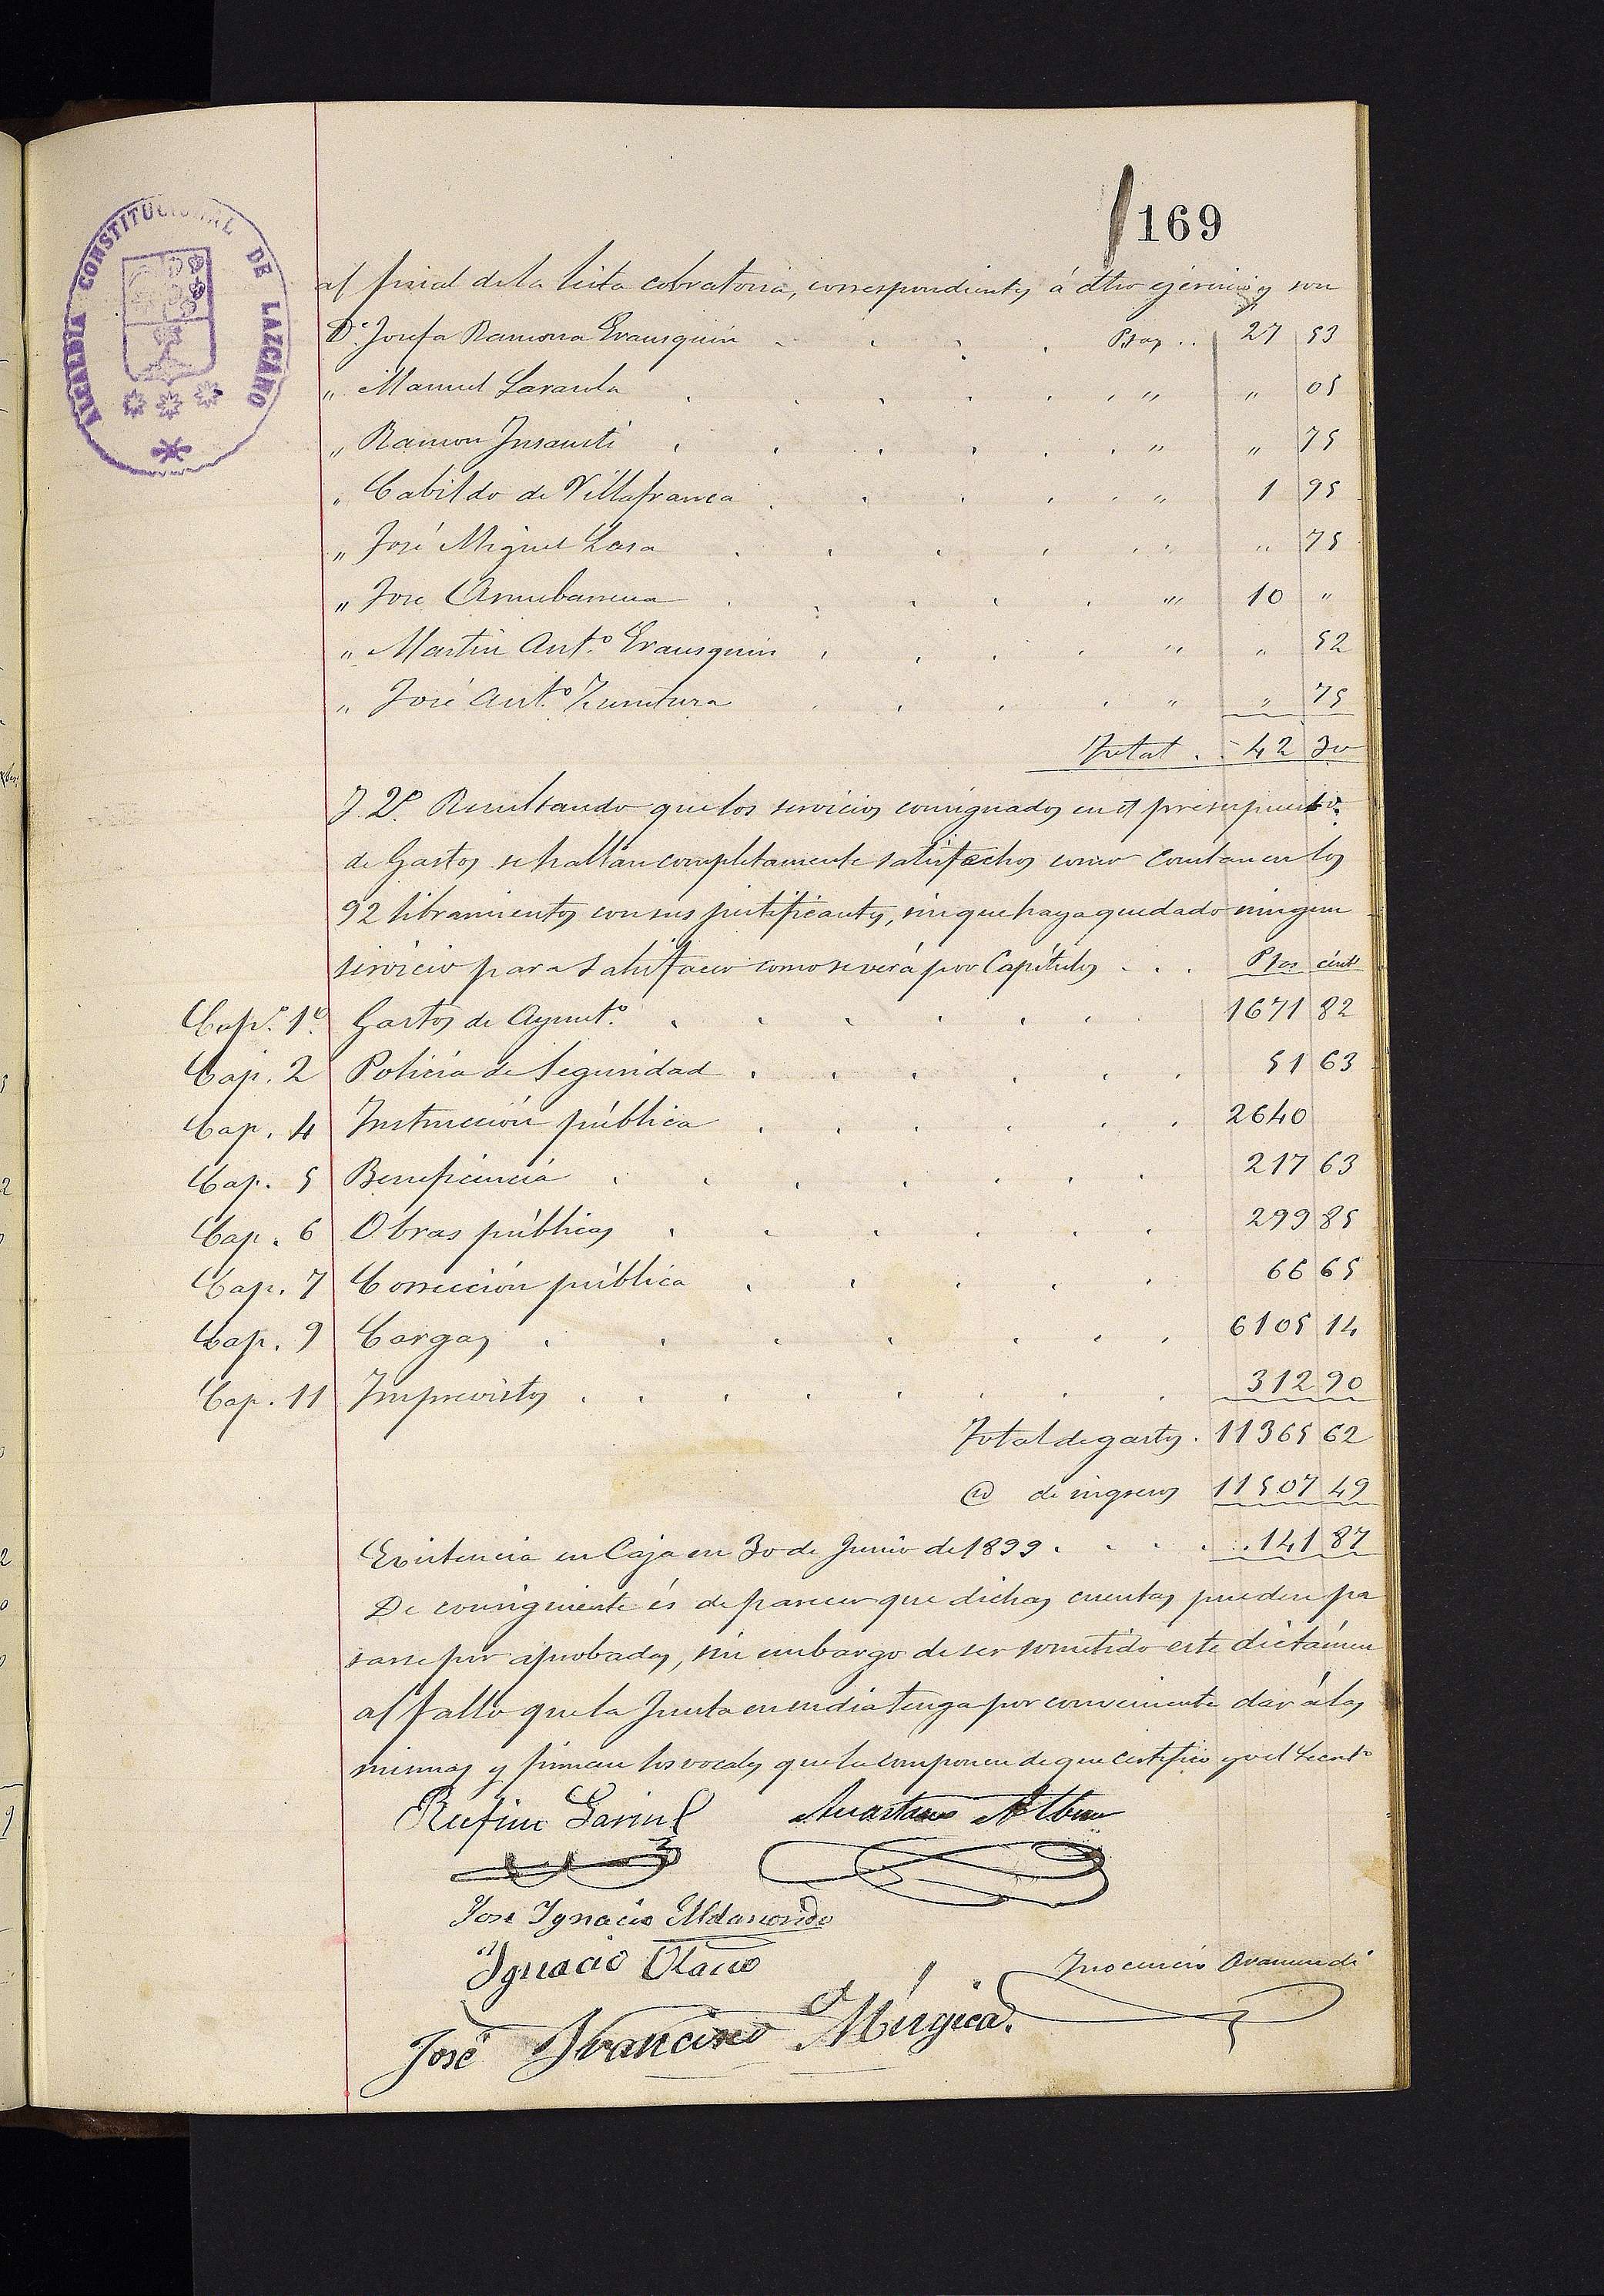 169
ALCALDIA CONSTITUCIONAL DE LAZCANO
al final de la lista cobratoria, correspondientes á dho ejercicio y son
Dª Josefa Ramona Erausquin Ptas 27 53
" Manuel " " 05
" Ramon Insausti " " 75
" Cabildo de Villafranca " 1 95
" José Miguel Lasa " " 75
" Jose " 10 "
" Martin Antº Erausquin " " 52
" José Antº " " 75
Total 42 30
Y 2º Resultando que los servicios consignados en el presupuesto
de Gastos se hallan completamente satisfechos como constan en los
92 libramientos con sus justificantes, sin que haya quedado ningun
servicio para satisfacer como se verá por Capítulos . . . Ptas cénts
Cap.º 1º Gastos de Ayuntº 1671 82
Cap. 2 Policia de Seguridad 51 63
Cap. 4 Instrucción pública 2640
Cap. 5 Beneficencia 217 63
Cap. 6 Obras públicas 299 85
Cap. 7 Corrección pública 66 65
Cap. 9 Cargas 6105 14
Cap. 11 Imprevistos 312 90
Total de gastos 11365 62
de ingresos 11507 49
Existencia en Caja en 30 de Junio de 1899 141 87
De consiguiente és de parecer que dichas cuentas pueden pa
sarse por aprobadas, sin embargo de ser sometido este dictámen
al fallo que la Junta en su dia tenga por conveniente dar á las
mismas y firman los vocales que la componen de que certifico yo el Secretº
Rufino
José Ignacio Aldasoro
Ignacio Olano
Inocencio Aramendi
José Francisco Múgica